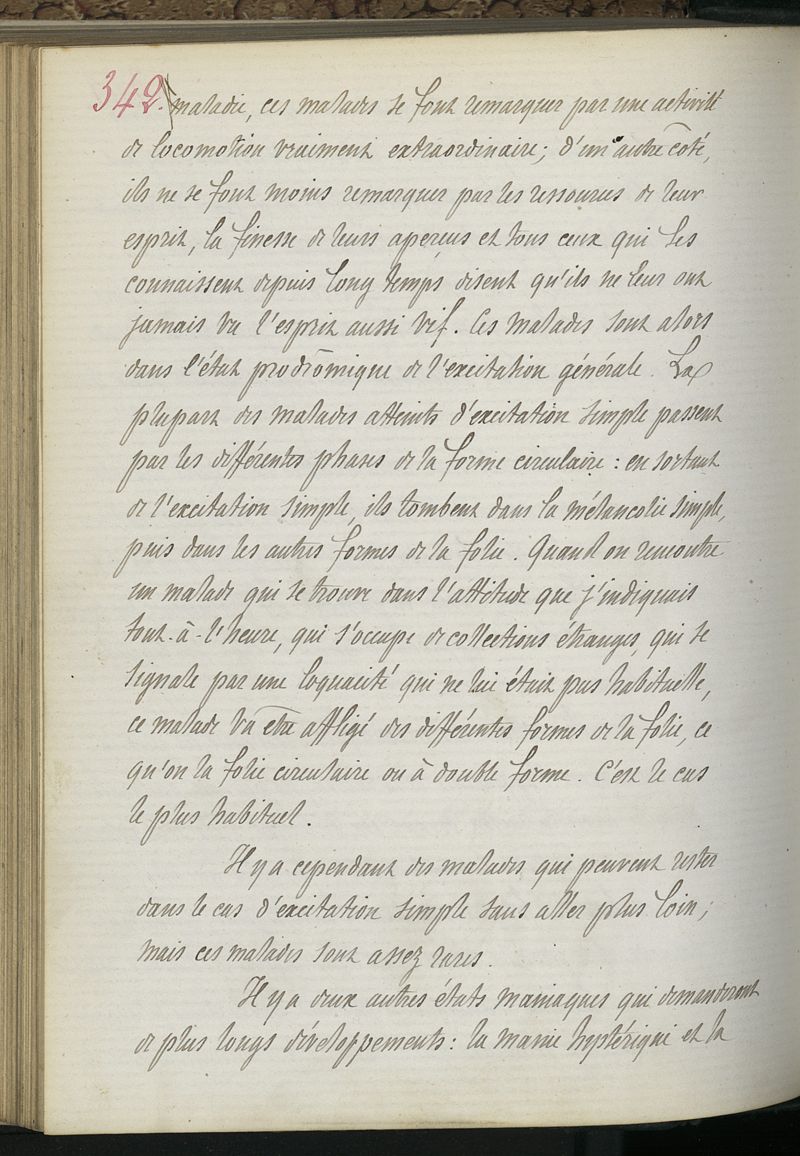 342. maladie, ces malades se font remarquer par une activité
de locomotion vraiment extraordinaire; d'un autre coté,
ils ne se font moins remarquer par les ressources de leur
esprit, la finesse de leurs aperçus et tous ceux qui les
connaissent depuis long temps disent qu'ils ne leur ont
jamais vu l'esprit aussi vif. Ces malades sont alors
dans l'état prodrômique de l'excitation générale. La
plupart des malades atteints d'excitation simple passent
par les différentes phases de la forme circulaire : en sortant
de l'excitation simple, ils tombent dans la mélancolie simple,
puis dans les autres formes de la folie. Quand on rencontre
un malade qui se trouve dans l'attitude que j'indiquais
tout-à-l'heure, qui s'occupe de collections étranges, qui se
signale par une loquacité qui ne lui était pas habituelle,
ce malade va être affligé des différentes formes de la folie, ce
qu'on la folie circulaire ou à double forme. C'est le cas
le plus habituel.
Il y a cependant des malades qui peuvent rester
dans le cas d'excitation simple sans aller plus loin;
mais ces malades sont assez rares.
Il y a deux autres états maniaques qui demanderont
de plus longs développements : la manie hystérique et la